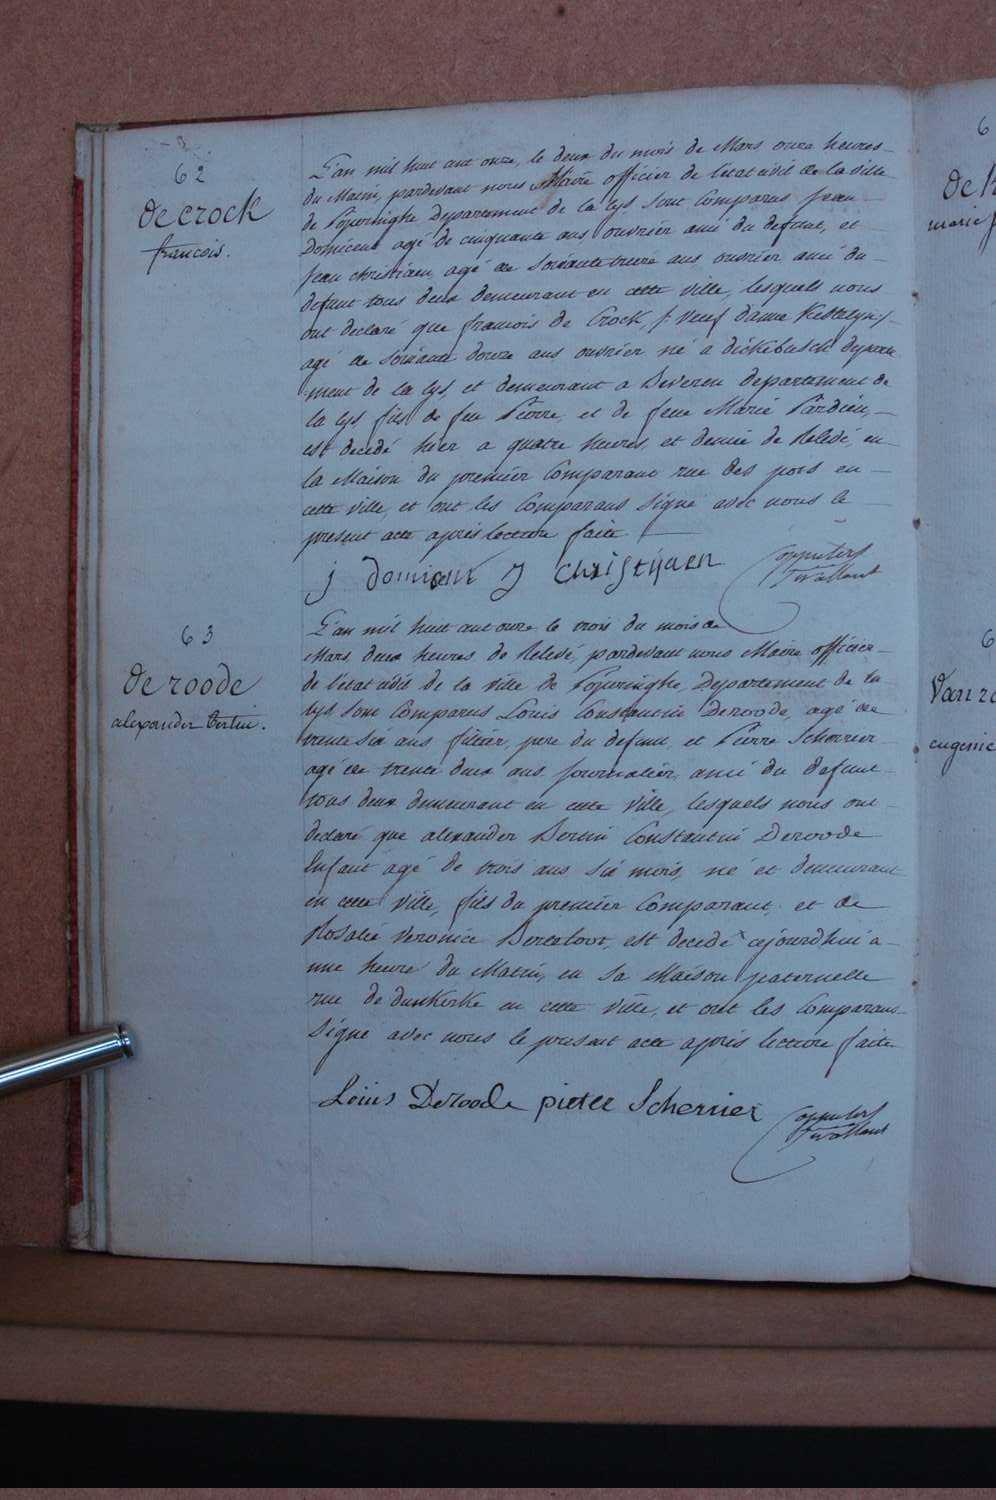 62
decrock
francois.
L'an mil huit cent onze, le deux du mois de Mars onze heures
du Matin, pardevant nous Maire officier de l'etat civil de la ville
de Poperinghe Departement de la Lys sont Comparus Jean
Domicent agé de cinquante ans ouvrier ami du defunt, et
Jean christiaen, agé de soixante treize ans ouvrier ami du
defunt tous deux demeurant en cette ville, lesquels nous
ont declaré que francois de Crock, /: veuf d'anne Kestelyn :/
agé de soixante douze ans ouvrier né a dickebusch departe
ment de la lys, et demeurant a Beveren departement de
la lys, fils de feu Pierre, et de feue Marie Pardieu,
est decedé hier a quatre heures et demie de Relevé, en
la Maison du premier Comparant rue des pots en
cette ville, et ont les Comparans Signé avec nous le
present acte apres lecture faite.
j domicen J Christijaen
63
de roode
alexander bertin.
L'an mil huit cent onze le trois du mois de
Mars, deux heures de Relevé, pardevant nous Maire officier
de l'etat civil de la ville de Poperinghe, Departement de la
Lys sont Comparus Louis Constantin Deroode, agé de
trente six ans filtier, pere du defunt, et Pierre Scherrier
agé de trente deux ans journalier, ami du defunt
tous deux demeurant en cette ville, lesquels nous ont
declaré que alexander Bertin Constantin Deroode
Enfant agé de trois ans six mois, né et demeurant
en cette ville, fils du premier Comparant, et de
Rosalie Veronice Berteloot, est decedé cejourdhui a
une heure du Matin, en sa Maison paternelle
rue de dunkerke en cette ville, et ont les Comparans
Signé avec nous le present acte apres lecture faite
Louis Deroode pieter Scherrier
6
marie
6
Van
eugenie